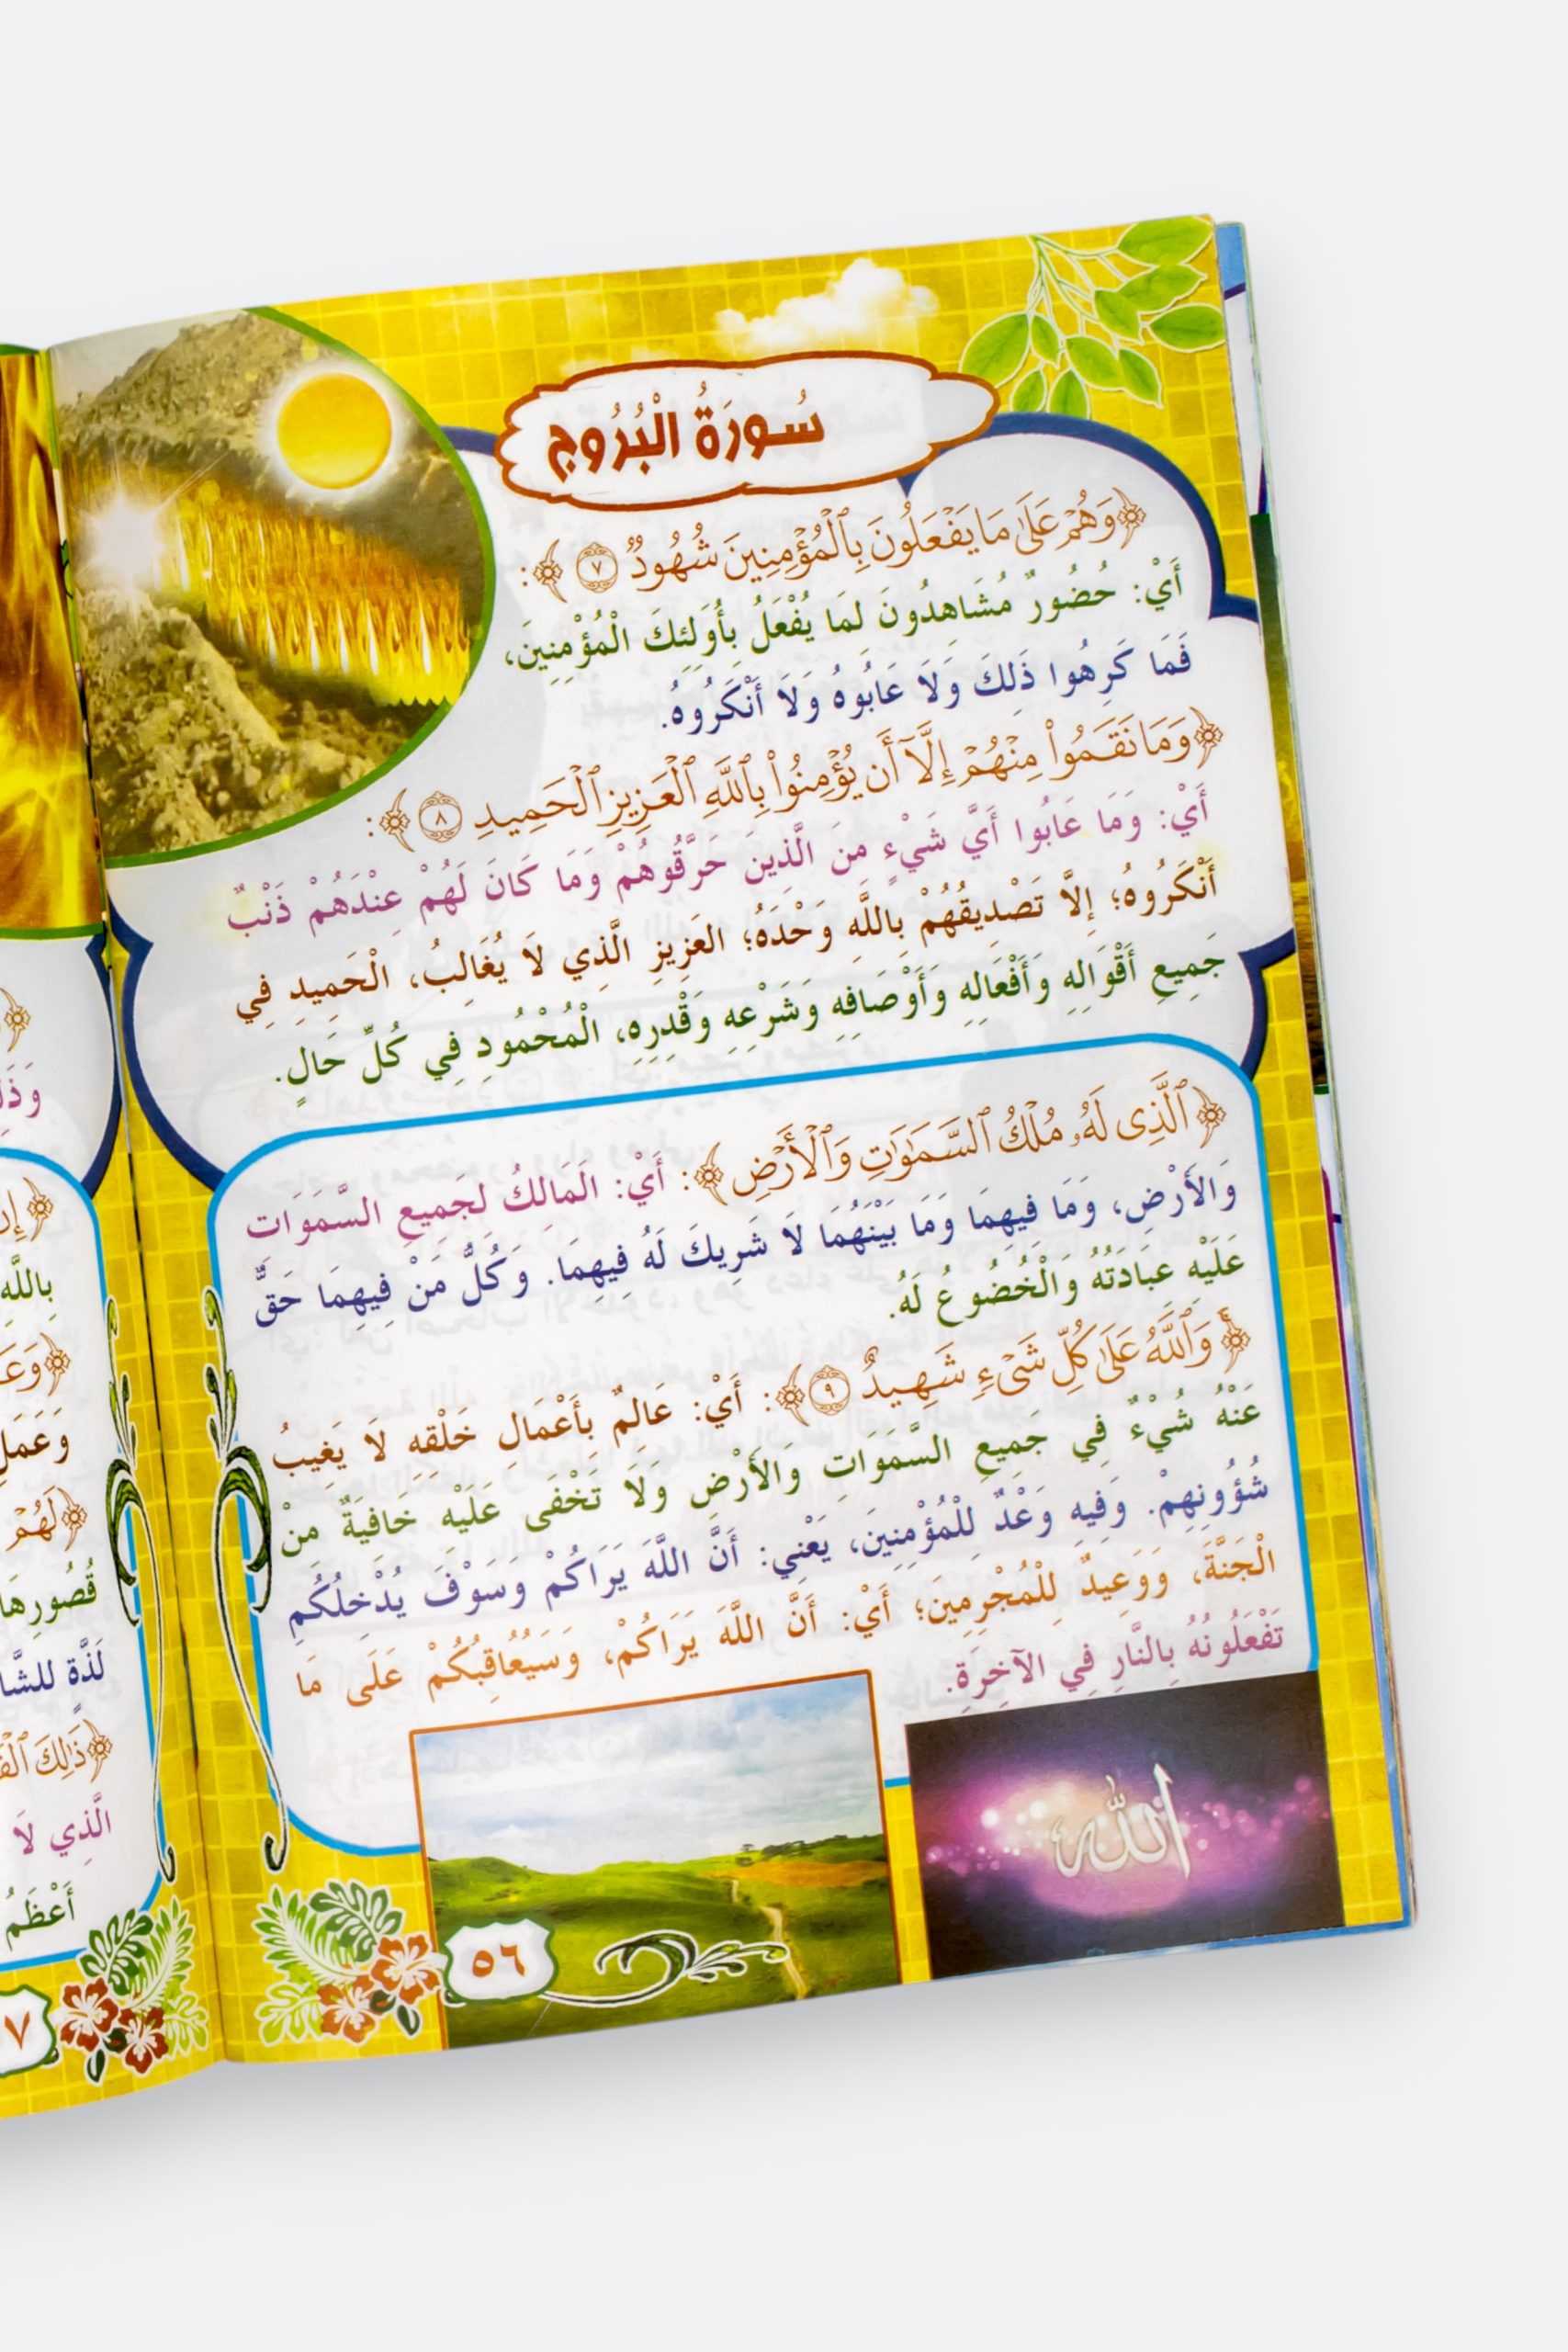 سُورَةُ الْبُرُوجِ
﴿وَهُمْ عَلَىٰ مَا يَفْعَلُونَ بِٱلْمُؤْمِنِينَ شُهُودٌ ٧﴾:
أَيْ: حُضُورٌ مُشَاهِدُونَ لِمَا يُفْعَلُ بِأُوَلَئِكَ الْمُؤْمِنِينَ،
فَمَا كَرِهُوا ذَلِكَ وَلَا عَابُوهُ وَلَا أَنْكَرُوهُ.
﴿وَمَا نَقَمُوا۟ مِنْهُمْ إِلَّآ أَن يُؤْمِنُوا۟ بِٱللَّهِ ٱلْعَزِيزِ ٱلْحَمِيدِ ٨﴾:
أَيْ: وَمَا عَابُوا أَيَّ شَيْءٍ مِنَ الَّذِينَ حَرَّقُوهُمْ وَمَا كَانَ لَهُمْ عِنْدَهُمْ ذَنْبٌ
أَنْكَرُوهُ؛ إِلَّا تَصْدِيقُهُمْ بِاللَّهِ وَحْدَهُ؛ العَزِيزِ الَّذِي لَا يُغَالِبُ، الْحَمِيدِ فِي
جَمِيعِ أَقْوَالِهِ وَأَفْعَالِهِ وَأَوْصَافِهِ وَشَرْعِهِ وَقْدِرِهِ، الْمُحْمُودِ فِي كُلِّ حَالٍ.
﴿ٱلَّذِى لَهُۥ مُلْكُ ٱلسَّمَٰوَٰتِ وَٱلْأَرْضِ﴾: أَيْ: الَمَالِكُ لِجَمِيعِ السَّمَوَات
وَالأَرْضِ، وَمَا فِيهِمَا وَمَا بَيْنَهُمَا لَا شَرِيكَ لَهُ فِيهِمَا. وَكُلُّ مَنْ فِيهِمَا حَقٌّ
عَلَيْهِ عِبَادَتُهُ وَالْخُضُوعُ لَهُ.
﴿وَٱللَّهُ عَلَىٰ كُلِّ شَىْءٍ شَهِيدٌ ٩﴾: أَيْ: عَالِمٌ بِأَعْمَالِ خَلْقِهِ لَا يَغِيبُ
عَنْهُ شُيْءٌ فِي جَمِيعِ السَّمَوَاتِ وَالأَرْضِ وَلَا تَخْفَى عَلَيْهِ خَافِيَةٌ منْ
شُؤُونِهِمْ. وَفِيهِ وَعْدٌ لِلْمُؤْمِنِينَ، يَعْنِي: أَنَّ اللَّهَ يَرَاكُمْ وَسَوْفَ يُدْخِلُكُم
الْجَنَّةَ، وَوَعِيدٌ لِلْمُجْرِمِينَ؛ أَيْ: أَنَّ اللَّهَ يَرَاكُمْ، وَسَيُعُاقِبُكُمْ عَلَى مَا
تَفْعَلُونُهُ بِالنَّارِ فِي الآخِرَةِ.
الله
٥٦
وَذَلِ
﴿إِن
بِاللَّهِ
﴿وَعَ
وَعَمَلِ
﴿لَهُمْ
قُصُورِهَا
لَذَّةٍ للشَّا
﴿ذَٰلِكَ ٱلْفَ
الَّذِي لَا
أَعْظَمُ
٧